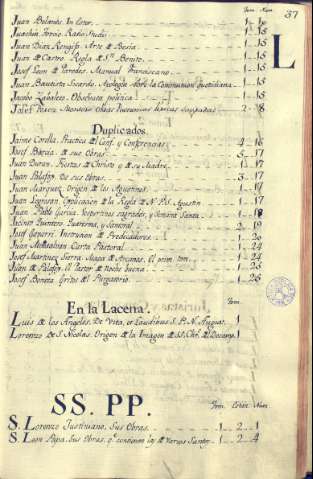 Tom. Num.
37
L
Juan Bolando In Ester. 1 - 15
Joachin 1 - 15
Juan Diaz Rengifo. Arte Poesia. 1 - 15
Juan de Castro. Regla de Sn. Benito. 1 - 15
Josef Leon de Paredes. Manual Franciscano. 1 - 15
Juan Bautista Sicardo. Apologia sobre la Communion quotidiana. 1 - 15
Jacobo Zaballeto. Obseruata politica. 1 - 15
2 - 8
Duplicados.
Jaime Corella. Practica del Conf. y Conferencias. 4 - 16
Josef Barcia de sus Obras. 5 - 17
Juan Duran. Fiestas de Christo y de su Madre. 1 - 17
Juan Palafox. De sus Obras. 3 - 17
Juan Marquez. Origen de los Agustinos. 1 - 17
Juan Explicacion de la Regla de N. P. S. Agustin. 1 - 17
Juan Pablo Garcia. Vespertinas sagradas, y Semana Santa. 1 - 18
Jacinto Quintero. Quaresma, y Santoral. 2 - 19
Josef Instruccion de Predicadores. 1 - 20
Juan Carta Pastoral. 1 - 24
Josef Martinez Sierra. de Arcanas. El prim. tom. 1 - 24
Juan de Palafox. El Pastor de Noche buena. 1 - 25
Josef Boneta Gritos del Purgatorio. 1 - 26
En la Lacena.
Tom.
Luis de los Angeles. De Vita, et Laudibus S. P. N. August. 1
Lorenzo de S. Nicolas. Origen de la Imagen de SS. Chto. de 1
SS. PP.
Tom. Estan. Num.
S. Lorenzo Justiniano. Sus Obras. 1 - 2 - 1
S. Leon Papa. Sus Obras, q.e contienen las de Varios Santos. 1 - 2 - 4